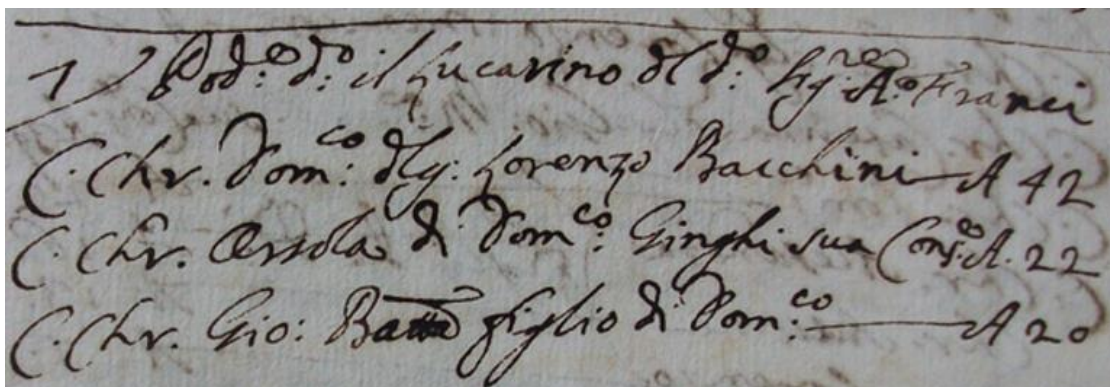 7 Pod:e d:o il Lucarino dl d:o Sig:re A:o Franci
C. Chr. Dom:co dlq: Lorenzo Bacchini A 42
C. Chr. Orsola di Dom:co Ginghi sua Cons:e A. 22
C. Chr. Gio: Batta figlio di Dom:co A 20